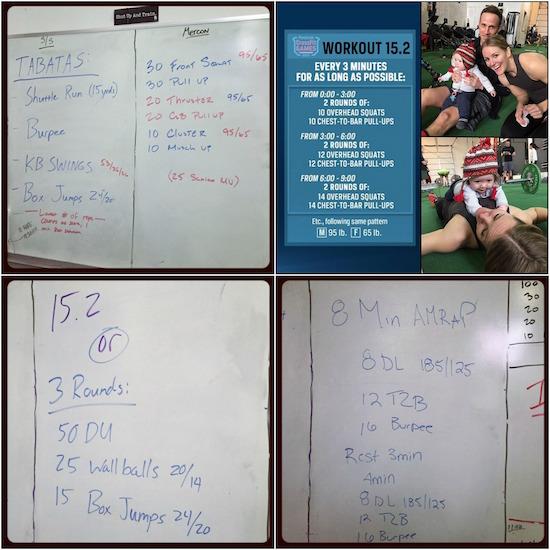 Shut Up And Train.
S/S
TABATAS:
Shuttle Run (15 yds)
- Burpee
- KB SWINGS 53/35/26
- Box Jumps 24/20
- Lowest # of reps
METCON
30 Front Squat 95/65
30 Pull up
20 Thruster 95/65
20 C2B Pull up
10 Cluster 95/65
10 Muscle up
CrossFit
GAMES
WORKOUT 15.2
EVERY 3 MINUTES
FOR AS LONG AS POSSIBLE:
FROM 0:00 - 3:00
2 ROUNDS OF:
10 OVERHEAD SQUATS
10 CHEST-TO-BAR PULL-UPS
FROM 3:00 - 6:00
2 ROUNDS OF:
12 OVERHEAD SQUATS
12 CHEST-TO-BAR PULL-UPS
FROM 6:00 - 9:00
2 ROUNDS OF:
14 OVERHEAD SQUATS
14 CHEST-TO-BAR PULL-UPS
Etc., following same pattern
M 95 lb. F 65 lb.
15.2
or
3 Rounds:
50 DU
25 Wallballs 20/14
15 Box Jumps 24/20
8 Min AMRAP
8 DL 185/125
12 T2B
16 Burpee
Rest 3min
4min
8 DL 185/125
12 T2B
16 Burpee
100
30
20
20
10